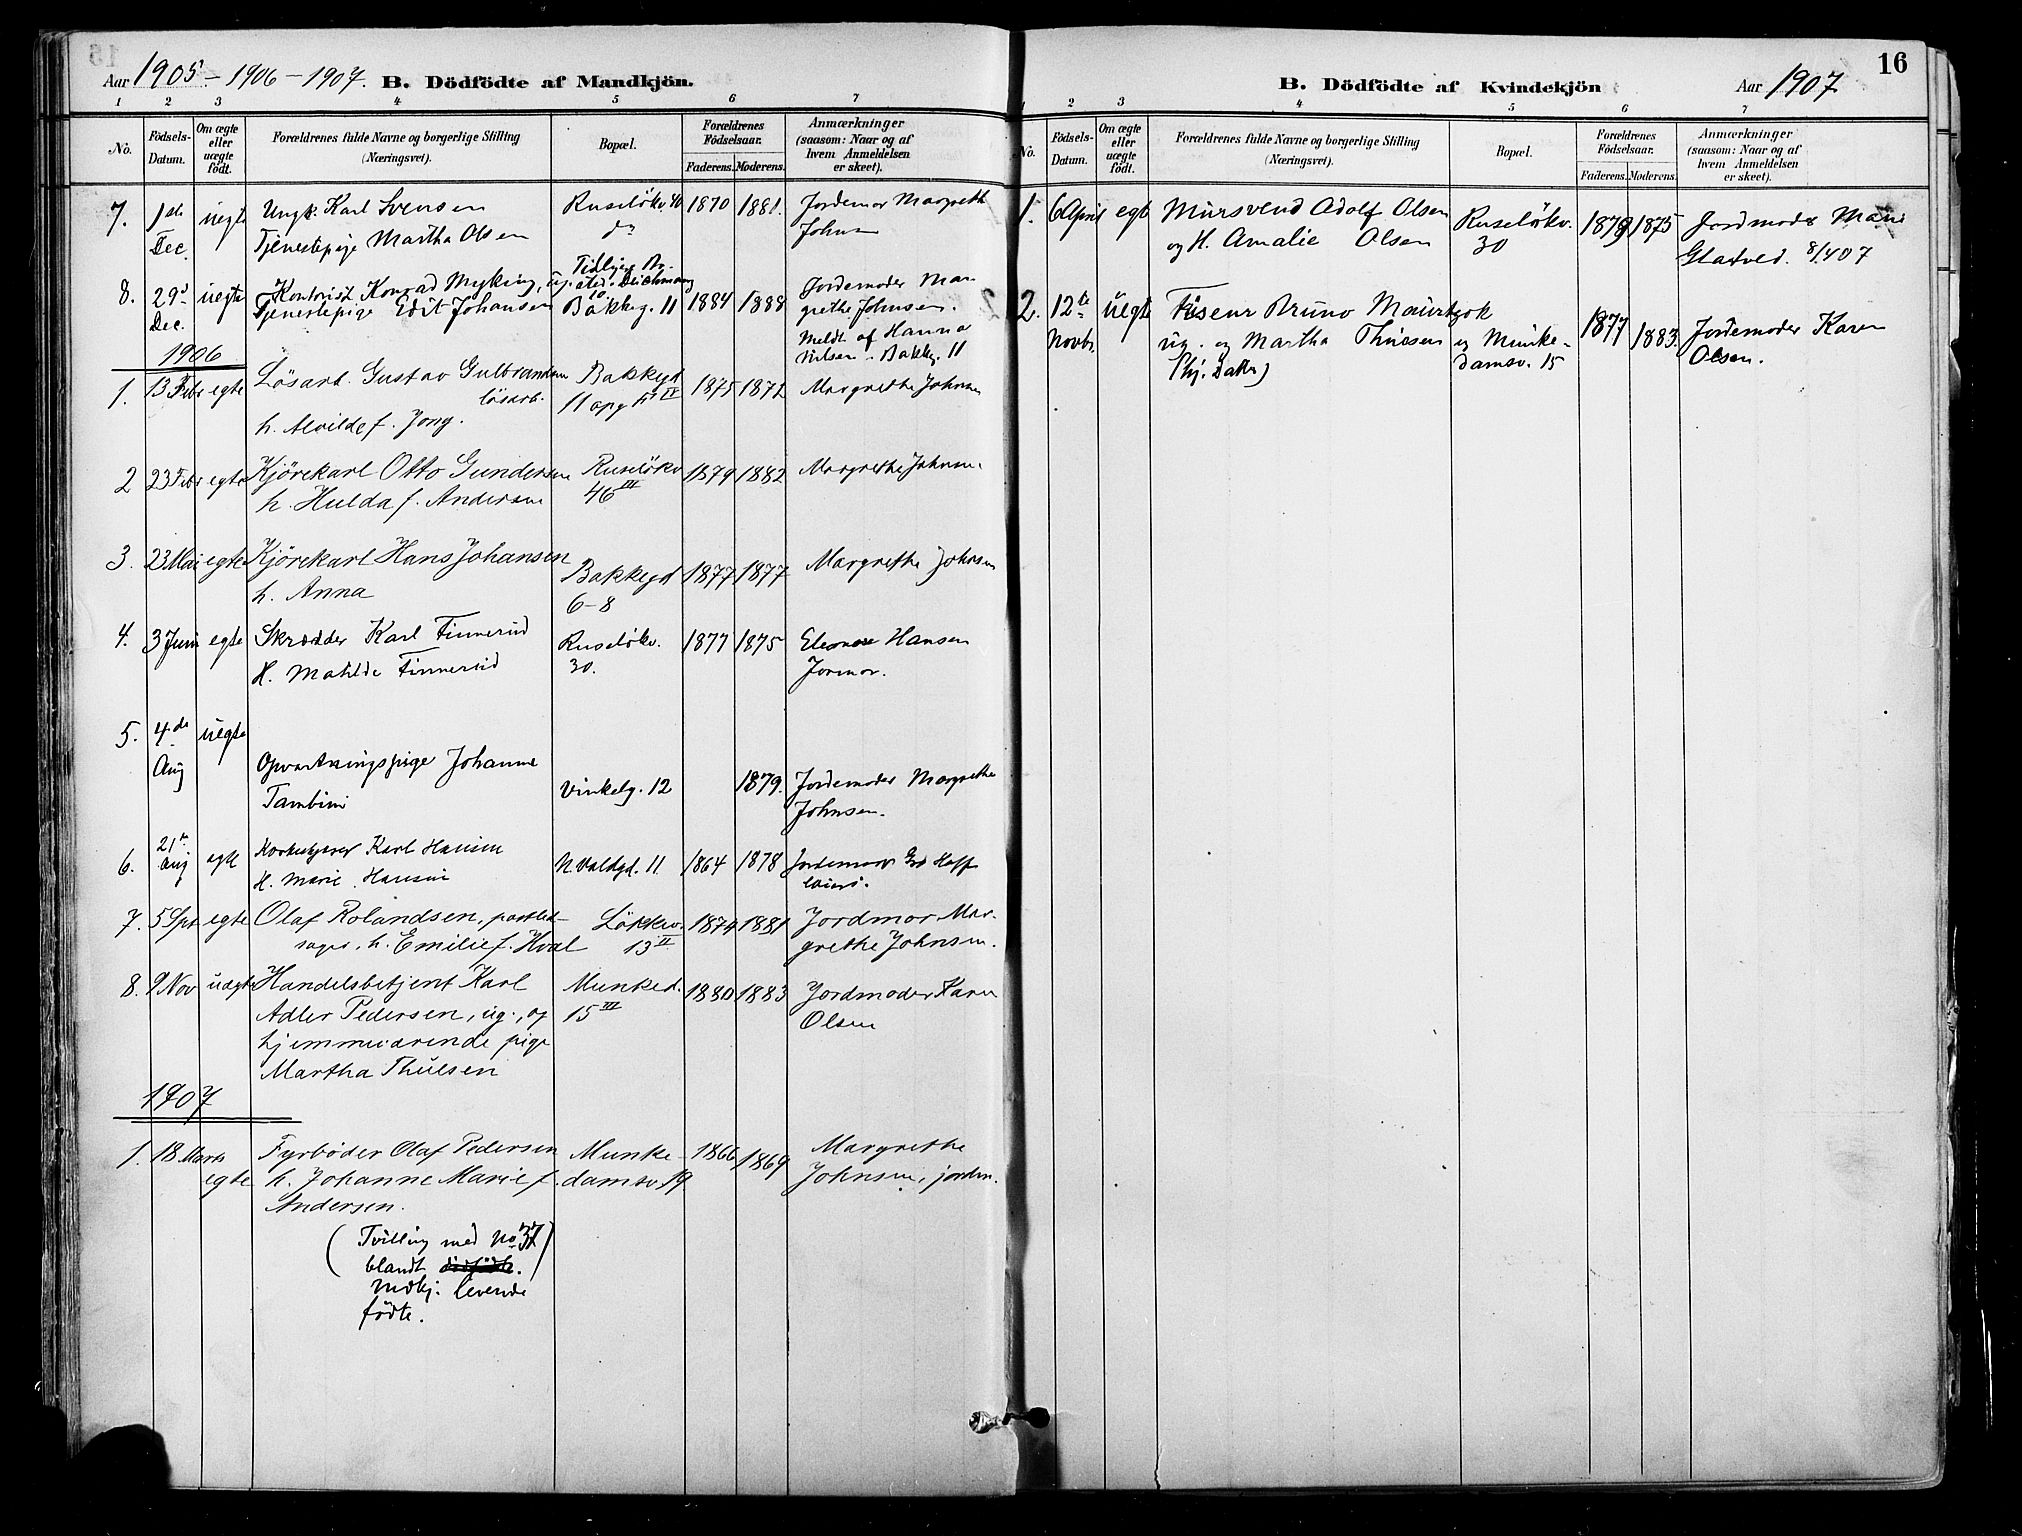 Aar 1905 - 1906 - 1907. B. Dödfödte af Mandkjön.
1 2 3 4 5 6 7
No.
Födsels-Datum.
Om ægte eller uægte födt.
Forældrenes fulde Navne og borgerlige Stilling
(Næringsvei).
Bopæl.
Forældrenes Födselsaar.
Faderens. Moderens.
Anmærkninger
(saasom: Naar og af
hvem Anmeldelsen
er skeet).
7. 1ste uegte Ungk. Karl Svensen Ruseløkv. 40 1870 1881. Jordemor Margreth
Dec. Tjenestepige Martha Olsen do Johnsen
8. 29d uegte Kontorist Konrad Myking, ug. 1884 1888 Jordemoder Mar-
Dec. Tjenestepige Edit Johansen Bakkeg. 11 grethe Johnsen.
Meldt af Hanna
Nilsen - Bakkeg. 11
1906
1. 13 Febr egte Løsarb. Gustav Gulbrandsen Bakkegd 1875 1872 Margrethe Johnsen
løsarb. 11 opg IV
h. Alvilde f. Jong.
2 23 Febr egte Kjørekarl Otto Gundersen Ruseløkv 1879 1882 Margrethe Johnsen
h. Hulda f. Andersen 46 III
3. 23 Mai egte Kjørekarl Hans Johansen Bakkegd 1877 1877 Margrethe Johnsen
h. Anna 6-8
4. 3 Juni egte Skrædder Karl Finnerud Ruseløkv. 1877 1875 Eleonore Hansen
H. Matilde Finnerud 30. Jormor.
5. 4de uegte
Aug Opvartningspige Johanne Vinkelg. 12 1879. Jordemoder Margrethe
Tambini Johnsen.
6. 21te Aug egte Karl Hansen N. Valdgd. 11 1864 1878 Jordemoder
H. Marie Hansen
7. 5 Spt egte Olaf Rolandsen, postled- Løkkev. 1874 1881 Jordmor Mar-
sager, h. Emilie f. Hval 13 II grethe Johnsen.
8. 9 Nov uægte Handelsbetjent Karl Munked. 1880 1883 Jordmoder Karen
Adler Pedersen, ug., og 15 III Olsen
hjemmeværende pige
Martha Thulsen
1907
1. 18 Marts Fyrbøder Olaf Pedersen Munke- 1866 1869 Margrethe
egte h. Johanne Marie f. damsv 19 Johnsen, jordm.
Andersen.
(Tvilling med No 37
blandt dødfødte.)
Mdkj. levende
fødte.
B. Dödfödte af Kvindekjön Aar 1907 16
1 2 3 4 5 6 7
No.
Födsels-Datum.
Om ægte eller uægte födt.
Forældrenes fulde Navne og borgerlige Stilling
(Næringsvei).
Bopæl.
Forældrenes Födselsaar.
Faderens. Moderens.
Anmærkninger
(saasom: Naar og af
hvem Anmeldelsen
er skeet).
1. 6 April egte Mursvend Adolf Olsen Ruseløkv. 1879 1875 Jordmoder Marie
og H. Amalie Olsen 30 Glatved. 8/4 07
2. 12te uegte Bruno 1877 1883. Jordemoder Karen
Novb. ug. og Martha Thuesen Munke- Olsen.
damsv. 15